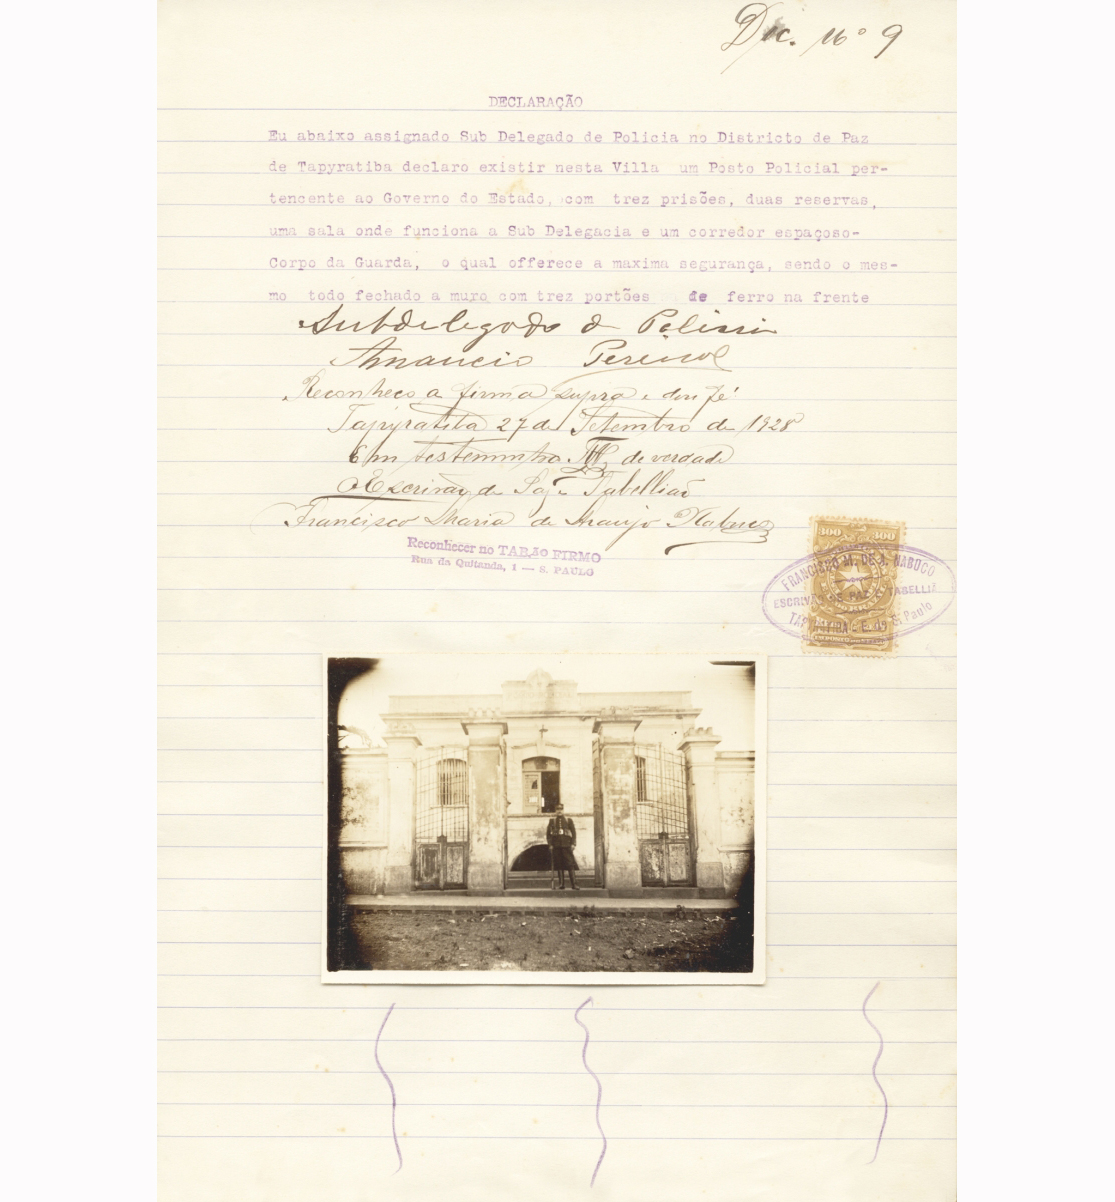 Dic. Nº 9
DECLARAÇÃO
Eu abaixo assignado Sub Delegado de Policia no Districto de Paz
de Tapyratiba declaro existir nesta Villa um Posto Policial per-
tencente ao Governo do Estado, com trez prisões, duas reservas,
uma sala onde funciona a Sub Delegacia e um corredor espaçoso-
Corpo da Guarda, o qual offerece a maxima segurança, sendo o mes-
mo todo fechado a muro com trez portões de ferro na frente
Subdelegado de
Amancio
Reconheco a firma supra e dou fé
Tapyratiba 27 de Setembro de 1928
Em testemunho de verdade
O Escrivão de Paz e Tabellião
Francisco Maria de Araujo Nabuco
Reconhecer no TABÃO FIRMO
Rua da Quitanda, 1 — S. PAULO
300 300
FRANCISCO M. DE A. NABUCO
ESCRIVÃO DE PAZ E TABELLIÃ
E. de S. Paulo